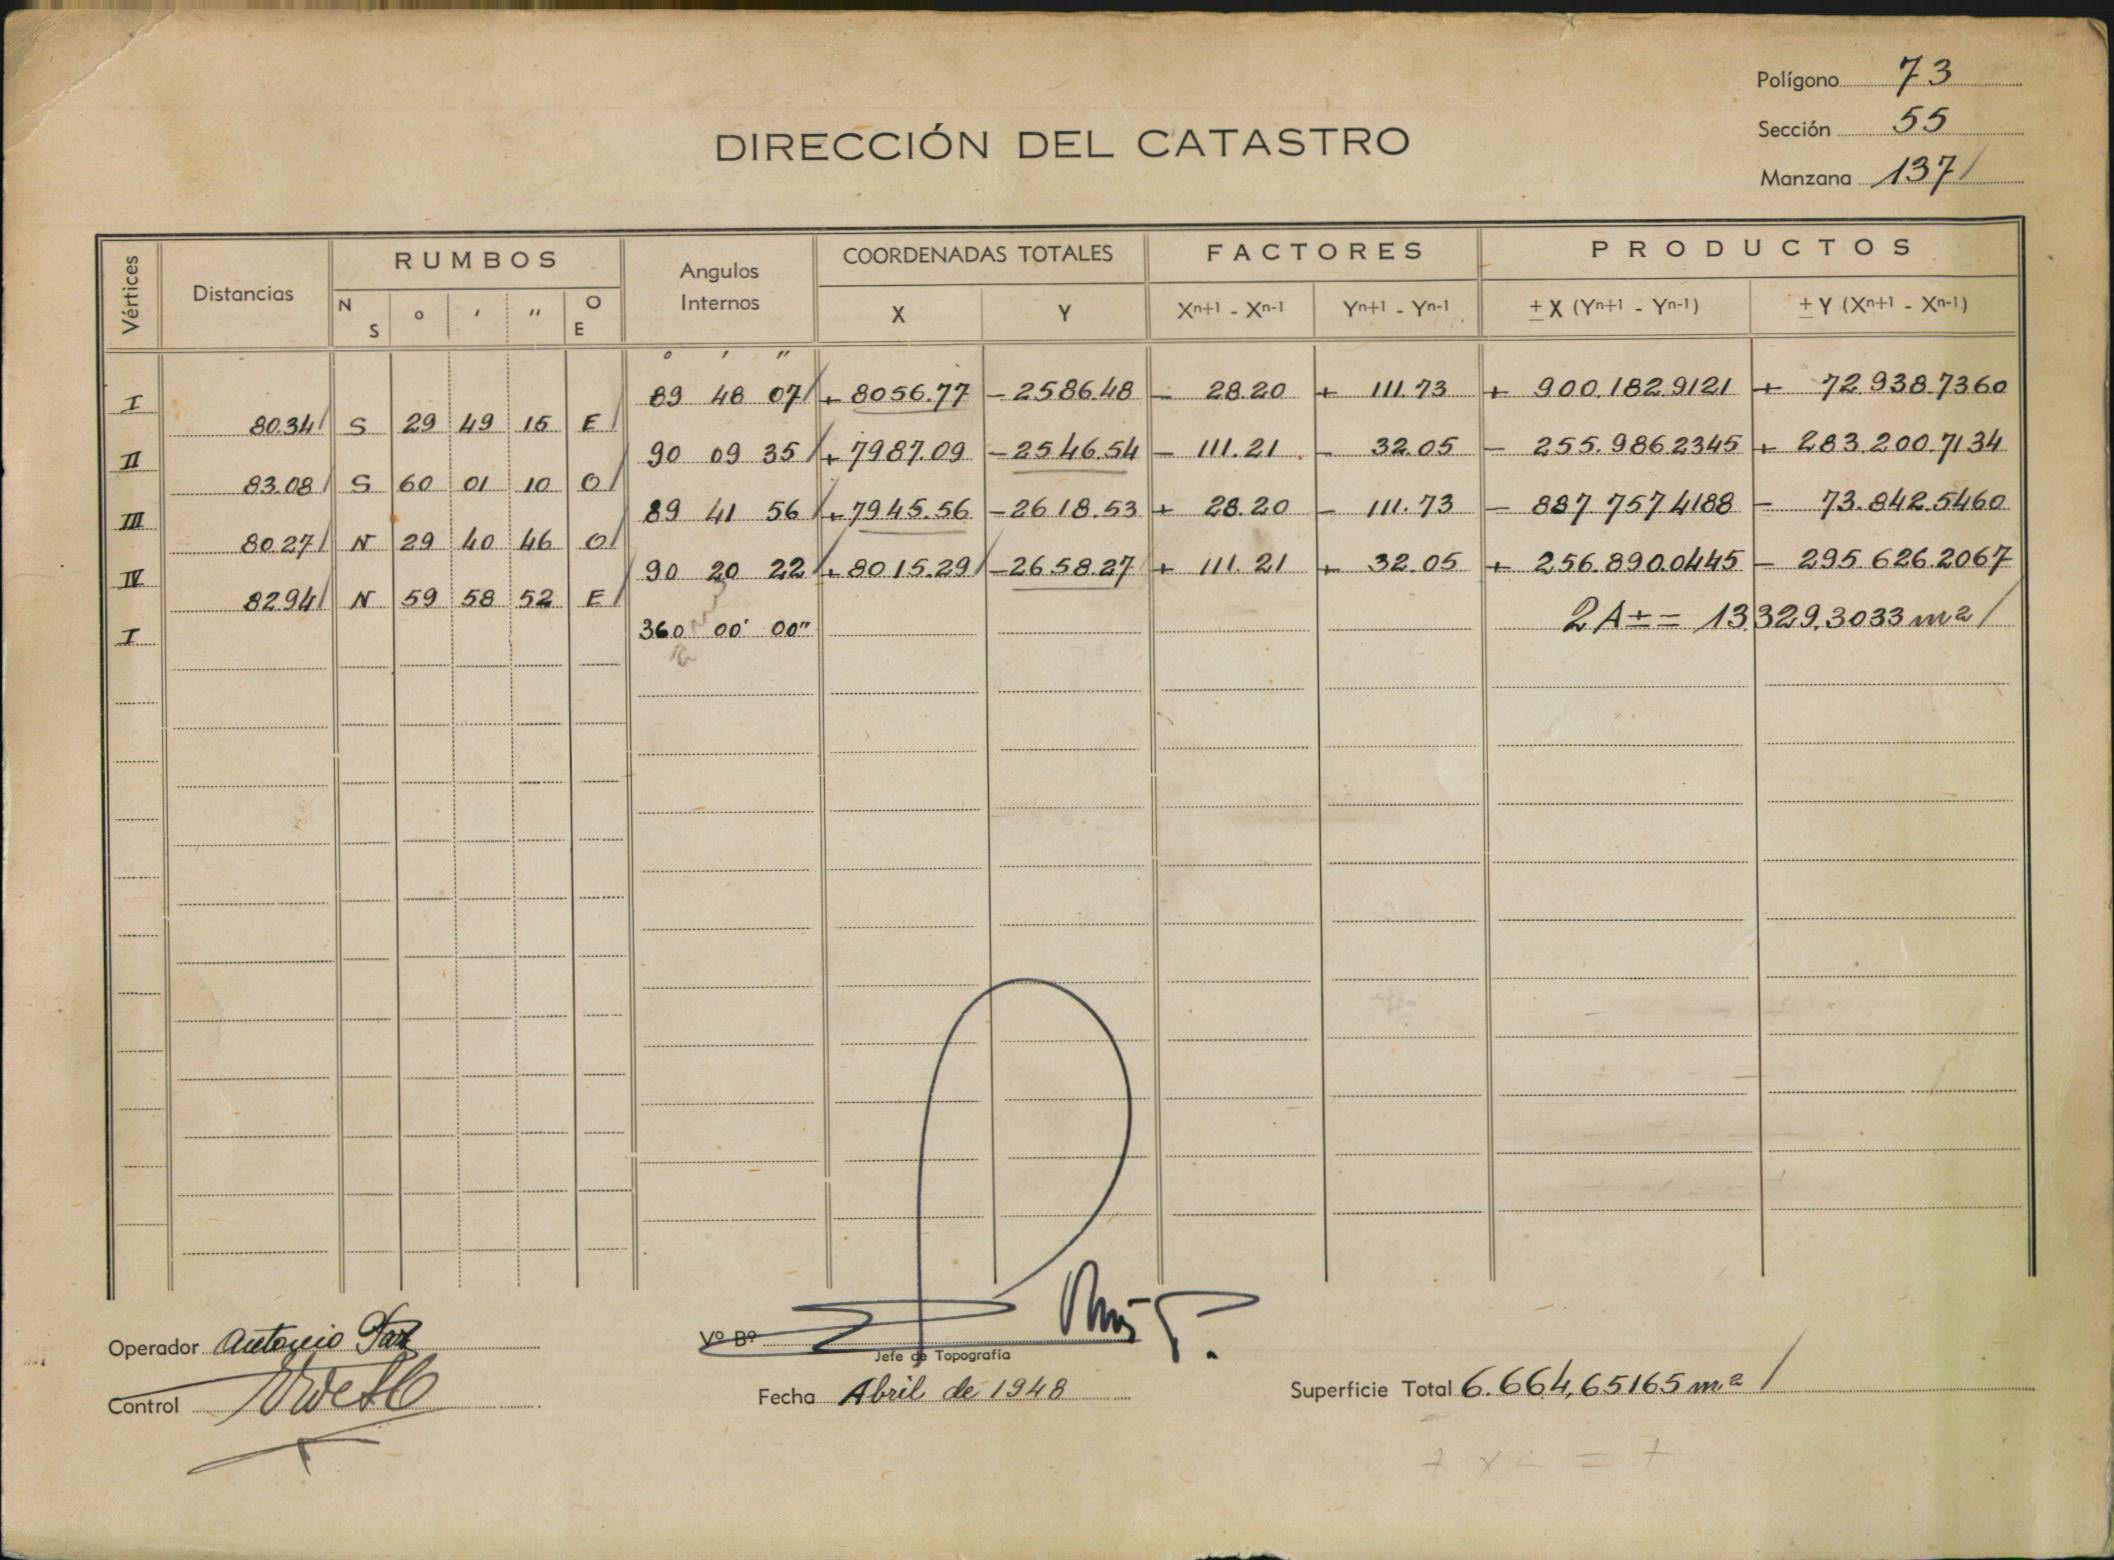 Polígono 73
DIRECCIÓN DEL CATASTRO
Sección 55
Manzana 137/
Vértices Distancias RUMBOS N S ° ' " O E Angulos Internos COORDENADAS TOTALES X Y FACTORES Xn+1 - Xn-1 Yn+1 - Yn-1 PRODUCTOS ± X (Yn+1 - Yn-1) ± Y (Xn+1 - Xn-1)
° ' "
I 89 48 07/ + 8056.77 - 2586.48 - 28.20 + 111.73 + 900.182.9121 + 72.938.7360
80.34/ S 29 49 15 E/
II 90 09 35/ + 7987.09 - 2546.54 - 111.21 - 32.05 - 255.986.2345 + 283.200.7134
83.08/ S 60 01 10 O/
III 89 41 56/ + 7945.56 - 2618.53 + 28.20 - 111.73 - 887 757 4188 - 73.842.5460
80.27/ N 29 40 46 O/
IV 90 20 22/ + 8015.29/ - 2658.27/ + 111.21 + 32.05 + 256.890.0445 - 295 626.2067
82.94/ N 59 58 52 E/
I 360 00' 00" 2 A ± = 13.329,3033 m2/
Operador Antonio Paz
Vº Bº
Jefe de Topografía
Control
Fecha Abril de 1948
Superficie Total 6.664,65165 m2/